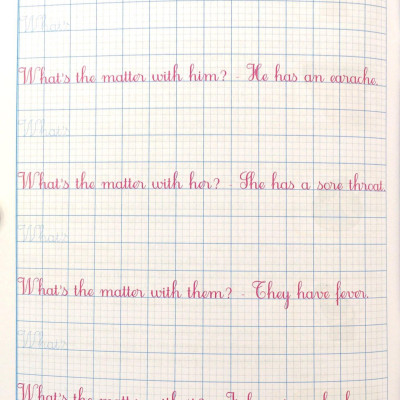 What's
What's the matter with him? - He has an earache.
What's
What's the matter with her? - She has a sore throat.
What's
What's the matter with them? - They have fever.
What's
What's the matter with